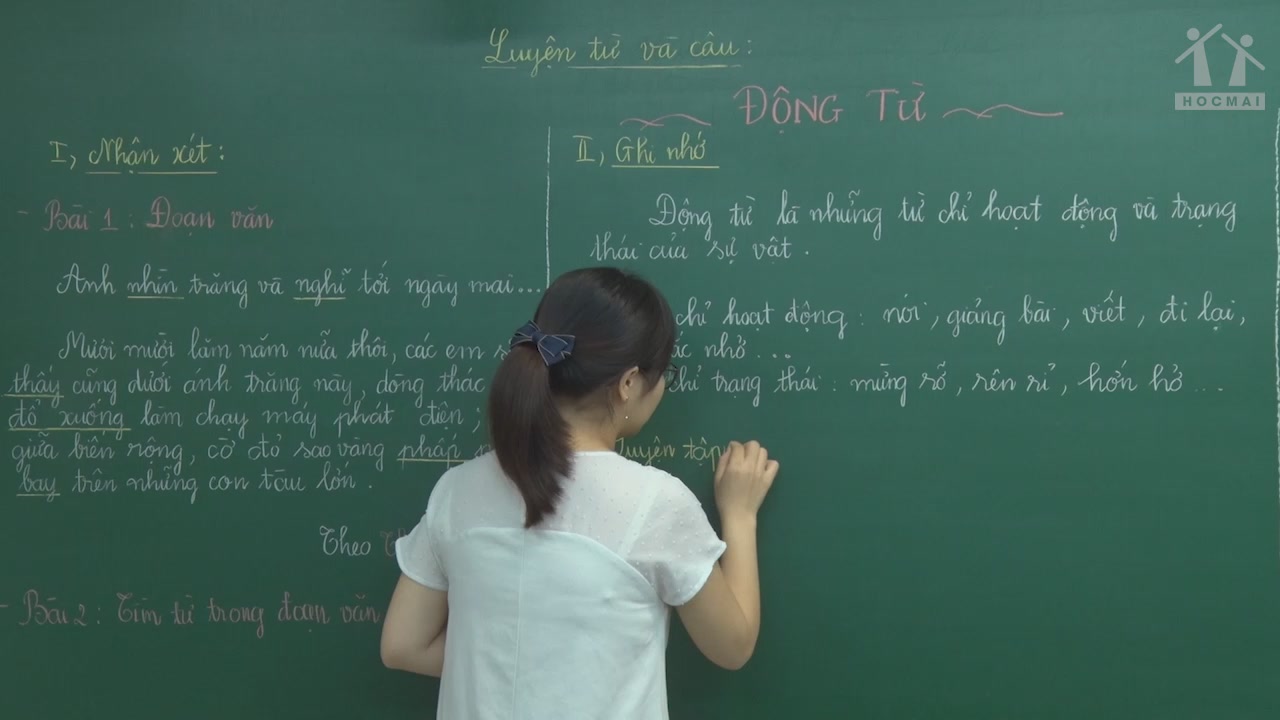 Luyện từ và câu:
ĐỘNG TỪ
HOCMAI
I, Nhận xét:
- Bài 1: Đoạn văn
Anh nhìn trăng và nghĩ tới ngày mai...
Mươi mười lăm năm nữa thôi, các em
thấy cũng dưới ánh trăng này, dòng thác
đổ xuống làm chạy máy phát điện;
giữa biển rộng, cờ đỏ sao vàng phấp
bay trên những con tàu lớn.
Theo
- Bài 2: Tìm từ trong đoạn văn
II, Ghi nhớ
Động từ là những từ chỉ hoạt động và trạng
thái của sự vật.
chỉ hoạt động: nói, giảng bài, viết, đi lại,
nhở...
chỉ trạng thái: mừng rỡ, rên rỉ, hớn hở...
Luyện tập